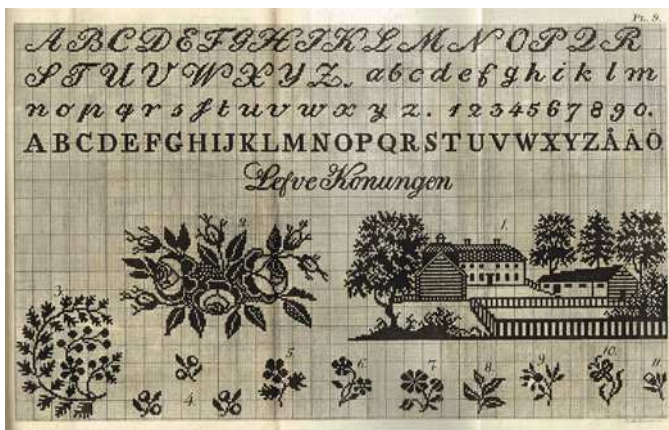 PL. 9.
A B C D E F G H I K L M N O P Q R
S T U V W X Y Z. a b c d e f g h i k l m
n o p q r s ſ t u v w x y z. 1 2 3 4 5 6 7 8 9 0.
A B C D E F G H I J K L M N O P Q R S T U V W X Y Z Å Ä Ö
Lefve Konungen
2.
1.
3.
4.
5.
6.
7.
8.
9.
10.
11